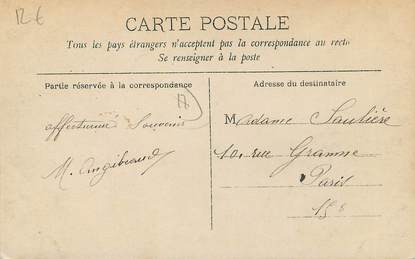 12 €
CARTE POSTALE
Tous les pays étrangers n'acceptent pas la correspondance au recto
Se renseigner à la poste
Partie réservée à la correspondance
Adresse du destinataire
affectueux Souvenir
M.
Madame Saulière
rue Gramme
Paris
15e